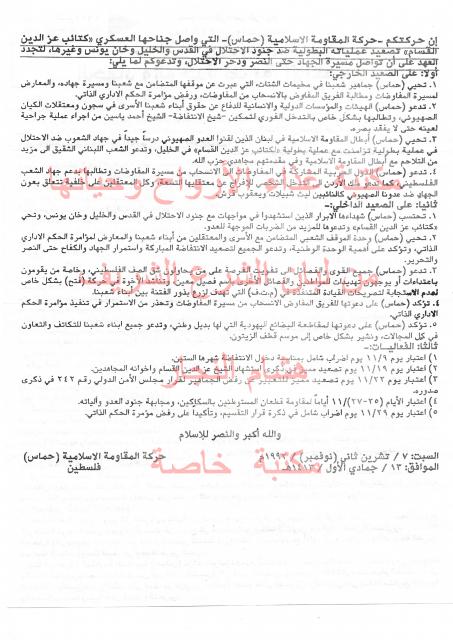 إن حركتكم -حركة المقاومة الاسلامية (حماس)- التي واصل جناحها العسكري «كتائب عز الدين
القسام» تصعيد عملياته البطولية ضد جنود الاحتلال في القدس والخليل وخان يونس وغيرها، لتجدد
العهد على أن تواصل مسيرة الجهاد حتى النصر ودحر الاحتلال، وتدعوكم لما يلي:
أولا: على الصعيد الخارجي:
١. تحيي (حماس) جماهير شعبنا في مخيمات الشتات، التي عبرت عن موقفها المتضامن مع شعبنا ومسيرة جهاده، والمعارض
لمسيرة المفاوضات ومطالبة الفريق المفاوض بالانسحاب من المفاوضات، ورفض مؤامرة الحكم الاداري الذاتي.
٢. تدعو (حماس) الهيئات والمؤسسات الدولية والانسانية للدفاع عن حقوق أبناء شعبنا الأسرى في سجون ومعتقلات الكيان
الصهيوني، وتطالبها بشكل خاص بالتدخل الفوري لتمكين -شيخ الانتفاضة- الشيخ أحمد ياسين من اجراء عملية جراحية
لعينه حتى لا يفقد بصره.
٣. تحيي (حماس) أبطال المقاومة الاسلامية في لبنان الذين لقنوا العدو الصهيوني درساً جيداً في جهاد الشعوب ضد الاحتلال
في عملية بطولية تزامنت مع عملية بطولية «لكتائب عز الدين القسام» في الخليل، وتدعو الشعب اللبناني الشقيق الى مزيد
من التلاحم مع أبطال المقاومة الاسلامية وفي مقدمتهم مجاهدي حزب الله.
٤. تدعو (حماس) الدول العربية المشاركة في المفاوضات الى الانسحاب من مسيرة المفاوضات وتطالبها بدعم جهاد الشعب
الفلسطيني، كما تدعو ملك الأردن الى التدخل الشخصي للإفراج عن معتقليها التسعة، وكل المعتقلين على خلفية تتعلق بعون
الجهاد ضد عدونا الصهيوني كالنائبين ليث شبيلات ويعقوب قرش.
ثانيا: على الصعيد الداخلي:-
١. تحتسب (حماس) شهداءها الأبرار الذين استشهدوا في مواجهات مع جنود الاحتلال في القدس والخليل وخان يونس، وتحي
«كتائب عز الدين القسام» وتدعوها للمزيد من الضربات الموجهة للعدو.
٢. تحيي (حماس) وحدة الموقف الشعبي المتضامن مع الأسرى والمعتقلين من أبناء شعبنا والمعارض لمؤامرة الحكم الاداري
الذاتي، وتؤكد على أهمية الوحدة الوطنية، وتدعو الجميع لتصعيد الانتفاضة المباركة واستمرار الجهاد والكفاح حتى النصر
والتحرير.
٣. تدعو (حماس) جميع القوى والفصائل الى تفويت الفرصة على من يحاولون شق الصف الفلسطيني، وخاصة من يقومون
باعتداءات أو يوجهون تهديدات للمواطنين والفصائل الأخرى باسم فصيل معين، وتناشد الأخوة في حركة (فتح) بشكل خاص
لعدم الاستجابة لتصريحات القيادة المتنفذة في (م.ت.ف) التي تهدف لزرع بذور الفتنة بين أبناء شعبنا.
٤. تؤكد (حماس) على دعوتها للفريق المفاوض الانسحاب من مسيرة المفاوضات وتحذر من الاستمرار في تنفيذ مؤامرة الحكم
الاداري الذاتي.
٥. تؤكد (حماس) على دعوتها لمقاطعة البضائع اليهودية التي لها بديل وطني، وتدعو جميع ابناء شعبنا للتكاتف والتعاون
في كل المجالات، ونشير بشكل خاص إلى موسم قطف الزيتون.
ثالثا: الفعاليات:-
١) اعتبار يوم ١١/٩ يوم اضراب شامل بمناسبة دخول الانتفاضة شهرها الستين.
٢) اعتبار يوم ١١/١٩ يوم تصعيد مميز في ذكرى استشهاد الشيخ عز الدين القسام واخوانه المجاهدين.
٣) اعتبار يوم ١١/٢٢ يوم تصعيد مميز للتعبير عن رفض الجماهير لقرار مجلس الأمن الدولي رقم ٢٤٢ في ذكرى
صدوره.
٤) اعتبار الأيام (٢٥-٢٧)/١١ أياماً لمقاومة قطعان المستوطنين بالسكاكين، ومجابهة جنود العدو وآلياته.
٥) اعتبار يوم ١١/٢٩ يوم اضراب شامل في ذكرى قرار التقسيم، وتأكيداً على رفض مؤامرة الحكم الذاتي.
والله أكبر والنصر للإسلام
السبت: ٧ / تشرين ثاني (نوفمبر) / ١٩٩٢م
حركة المقاومة الاسلامية (حماس)
الموافق: ١٣ / جمادي الأول / ١٤١٣هـ
فلسطين
مكتبة
هشام
مكتبة خاصة